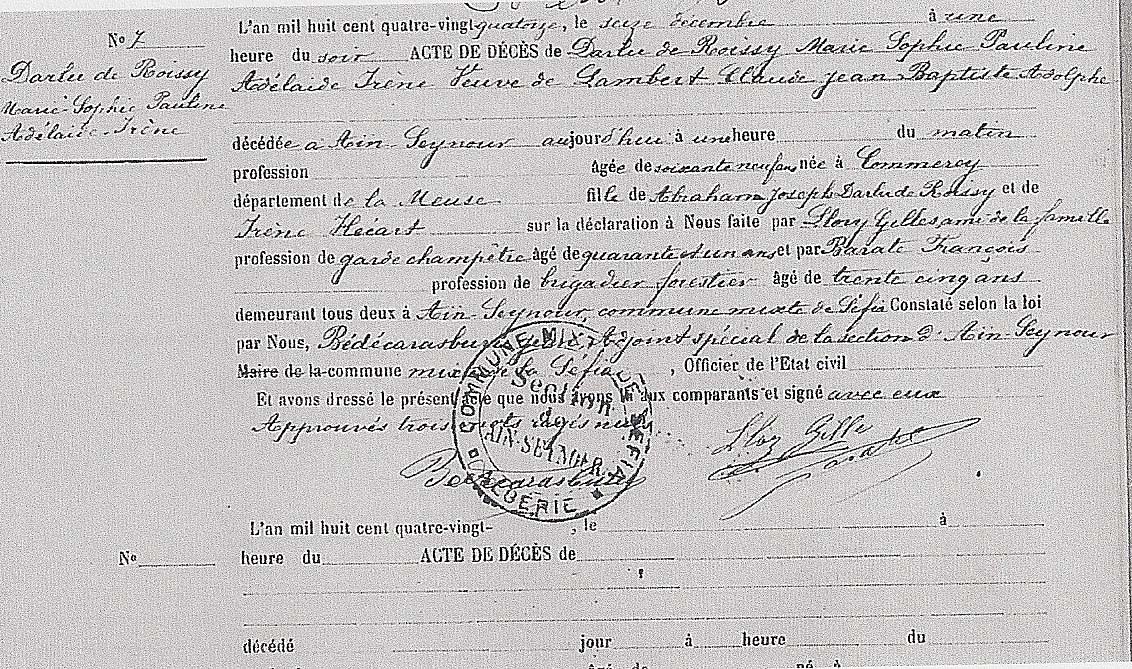 No 7
Darlu de Roissy
Marie-Sophie Pauline
Adélaide-Irène
L'an mil huit cent quatre-vingt quatorze, le seize décembre à une
heure du soir ACTE DE DÉCÈS de Darlu de Roissy Marie Sophie Pauline
Adélaide Irène Veuve de Lambert Claude jean Baptiste Adolphe
décédée a Ain-Seynour aujourd'hui à une heure du matin
profession âgée de soixante neuf ans née à Commercy
département de la Meuse fille de Abraham Joseph Darlu de Roissy et de
Irène Hécart sur la déclaration à Nous faite par Llory Gilles ami de la famille
profession de garde champêtre âgé de quarante et un ans et par Barate François
profession de brigadier forestier âgé de trente cinq ans
demeurant tous deux à Ain-Seynour, commune mixte de Séfia Constaté selon la loi
par Nous, Adjoint spécial de la section d'Ain-Seynour
Maire de la commune mixte de la Séfia, Officier de l'Etat civil
Et avons dressé le présent acte que nous avons lu aux comparants et signé avec eux
Approuvés trois mots rayés nuls
COMMUNE MIXTE DE SEFIA
Section
AIN-SEYNOUR
ALGERIE
L'an mil huit cent quatre-vingt- , le à
No heure du ACTE DE DÉCÈS de
décédé jour à heure du
âgé de né à